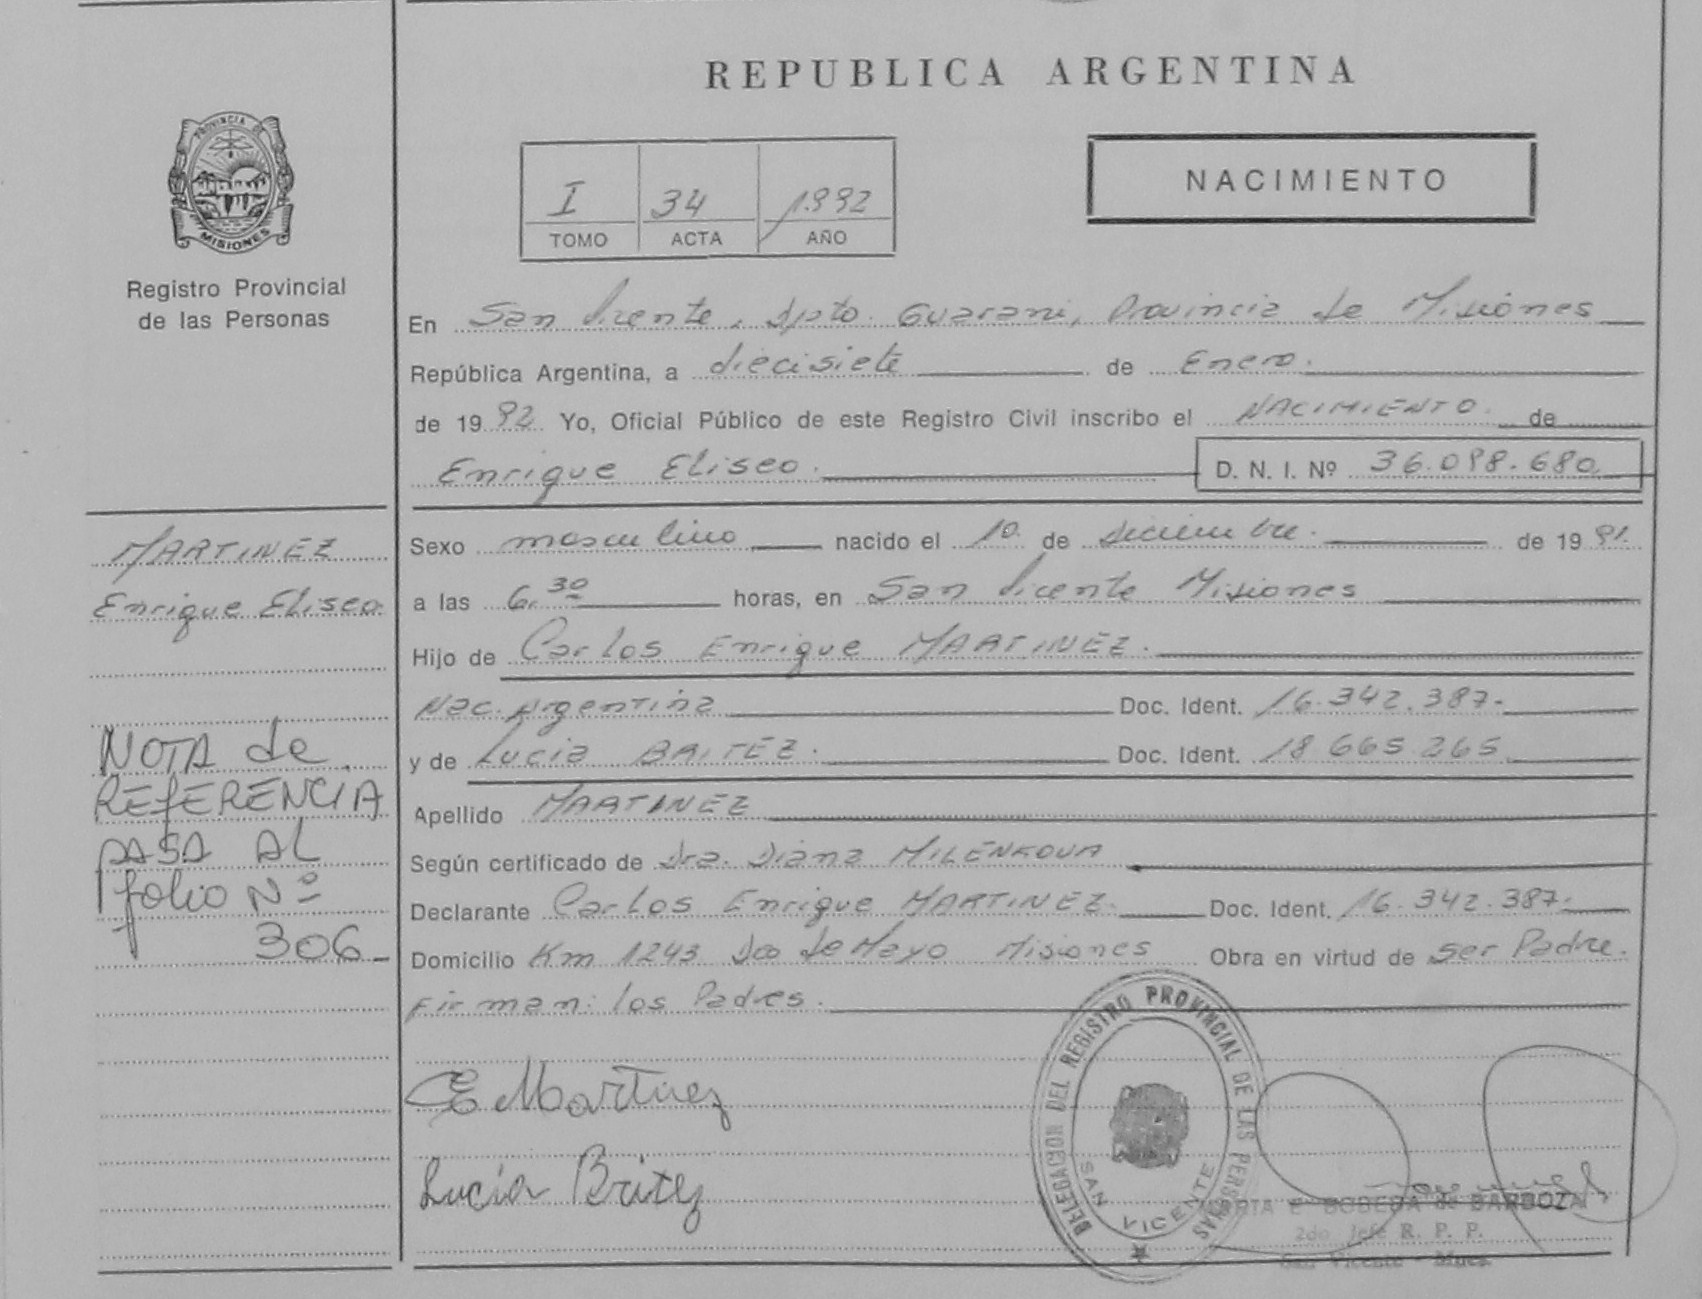 REPUBLICA ARGENTINA
PROVINCIA DE
MISIONES
Registro Provincial
de las Personas
I 34 1992
TOMO ACTA AÑO
NACIMIENTO
En San Vicente, Dpto. Guarani, Provincia de Misiones
República Argentina, a diecisiete de Enero.
de 19 92 Yo, Oficial Público de este Registro Civil inscribo el NACIMIENTO. de
Enrique Eliseo. D. N. I. Nº 36.098.680
MARTINEZ
Enrique Eliseo
NOTA de
REFERENCIA
PASA AL
folio Nº
306
Sexo masculino nacido el 10 de Diciembre. de 19 91.
a las 6.30 horas, en San Vicente Misiones
Hijo de Carlos Enrique MARTINEZ.
Nac. Argentina Doc. Ident. 16.342.387.
y de Lucia BRITEZ. Doc. Ident. 18.665.265
Apellido MARTINEZ
Según certificado de Dra. Diana MILENKOVA
Declarante Carlos Enrique MARTINEZ. Doc. Ident. 16.342.387.
Domicilio Km 1243 Dos de Mayo Misiones Obra en virtud de ser Padre.
Firman: los Padres.
C E Martinez
Lucía Britez
DELEGACION DEL REGISTRO PROVINCIAL DE LAS PERSONAS
SAN VICENTE
E BOBEDA de BARBOZA
2do Jefe R. P. P.
San Vicente - Mnes.